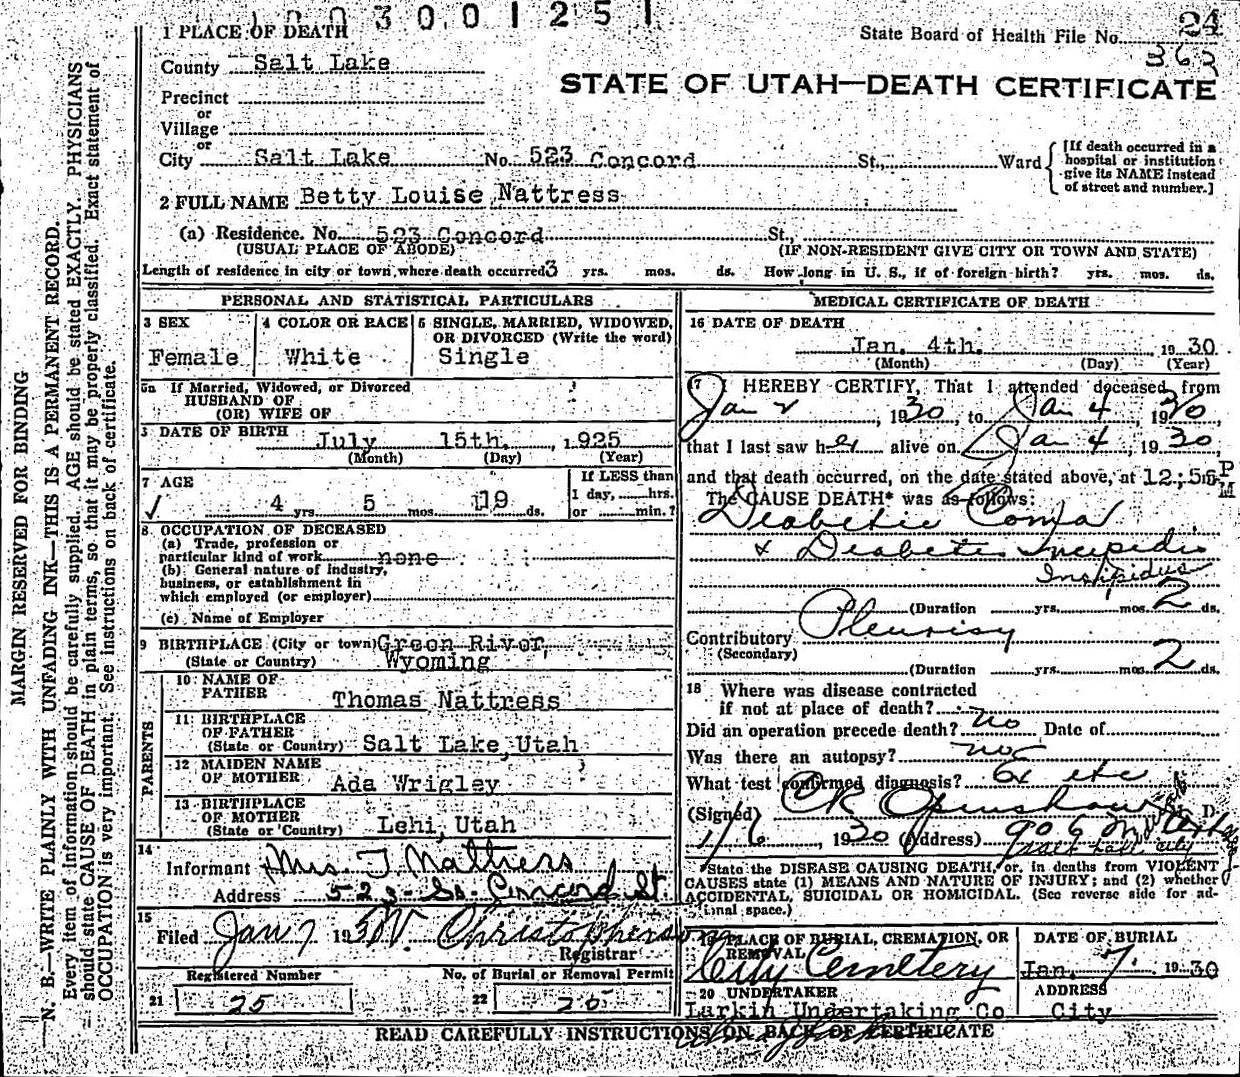 1003001251
1 PLACE OF DEATH
State Board of Health File No. 24
363
County Salt Lake
STATE OF UTAH—DEATH CERTIFICATE
Precinct
or
Village
or
City Salt Lake No. 523 Concord St., Ward
[If death occurred in a
hospital or institution
give its NAME instead
of street and number.]
2 FULL NAME Betty Louise Nattress
(a) Residence. No. 523 Concord St.,
(USUAL PLACE OF ABODE) (IF NON-RESIDENT GIVE CITY OR TOWN AND STATE)
Length of residence in city or town where death occurred 3 yrs. mos. ds. How long in U. S., if of foreign birth? yrs. mos. ds.
PERSONAL AND STATISTICAL PARTICULARS
3 SEX
Female
4 COLOR OR RACE
White
5 SINGLE, MARRIED, WIDOWED,
OR DIVORCED (Write the word)
Single
5a If Married, Widowed, or Divorced
HUSBAND OF
(OR) WIFE OF
DATE OF BIRTH
July 15th. 1925
(Month) (Day) (Year)
7 AGE
4 yrs. 5 mos. 19 ds.
If LESS than
1 day, hrs.
or min.?
8 OCCUPATION OF DECEASED
(a) Trade, profession or
particular kind of work none
(b) General nature of industry,
business, or establishment in
which employed (or employer)
(c) Name of Employer
9 BIRTHPLACE (City or town) Green River,
(State or Country) Wyoming
PARENTS
10 NAME OF
FATHER Thomas Nattress
11 BIRTHPLACE
OF FATHER
(State or Country) Salt Lake, Utah
12 MAIDEN NAME
OF MOTHER Ada Wrigley
13 BIRTHPLACE
OF MOTHER
(State or Country) Lehi, Utah
14
Informant Mrs. T Nattress
Address 523 So. Concord St
15
Filed Jan 7 1930 W. Christopherson
Registrar
Registered Number
21 25
No. of Burial or Removal Permit
22 25
MEDICAL CERTIFICATE OF DEATH
16 DATE OF DEATH
Jan. 4th. 1930
(Month) (Day) (Year)
17 I HEREBY CERTIFY, That I attended deceased from
Jan 2, 1930, to Jan 4, 1930
that I last saw her alive on Jan 4, 1930,
and that death occurred, on the date stated above, at 12:55 P
M
The CAUSE DEATH* was as follows:
Diabetic Coma
& Diabetes Incipidis
Insipidus
(Duration yrs. mos. 2 ds.
Contributory Pleurisy
(Secondary)
(Duration yrs. mos. 2 ds.
18 Where was disease contracted
if not at place of death?
Did an operation precede death? no Date of
Was there an autopsy? no
What test confirmed diagnosis? Ex etc
(Signed) CR Openshaw M. D.
1/6, 1930 (Address) 906 Medical Arts
Salt Lake City
State the DISEASE CAUSING DEATH, or, in deaths from VIOLENT
CAUSES state (1) MEANS AND NATURE OF INJURY; and (2) whether
ACCIDENTAL, SUICIDAL OR HOMICIDAL. (See reverse side for ad-
tional space.)
19 PLACE OF BURIAL, CREMATION, OR
REMOVAL
City Cemetery
DATE OF BURIAL
Jan. 7. 1930
20 UNDERTAKER
Larkin Undertaking Co
ADDRESS
City
READ CAREFULLY INSTRUCTIONS ON BACK OF CERTIFICATE
MARGIN RESERVED FOR BINDING
N. B.—WRITE PLAINLY WITH UNFADING INK—THIS IS A PERMANENT RECORD.
Every item of information should be carefully supplied. AGE should be stated EXACTLY. PHYSICIANS
should state CAUSE OF DEATH in plain terms, so that it may be properly classified. Exact statement of
OCCUPATION is very important. See instructions on back of certificate.